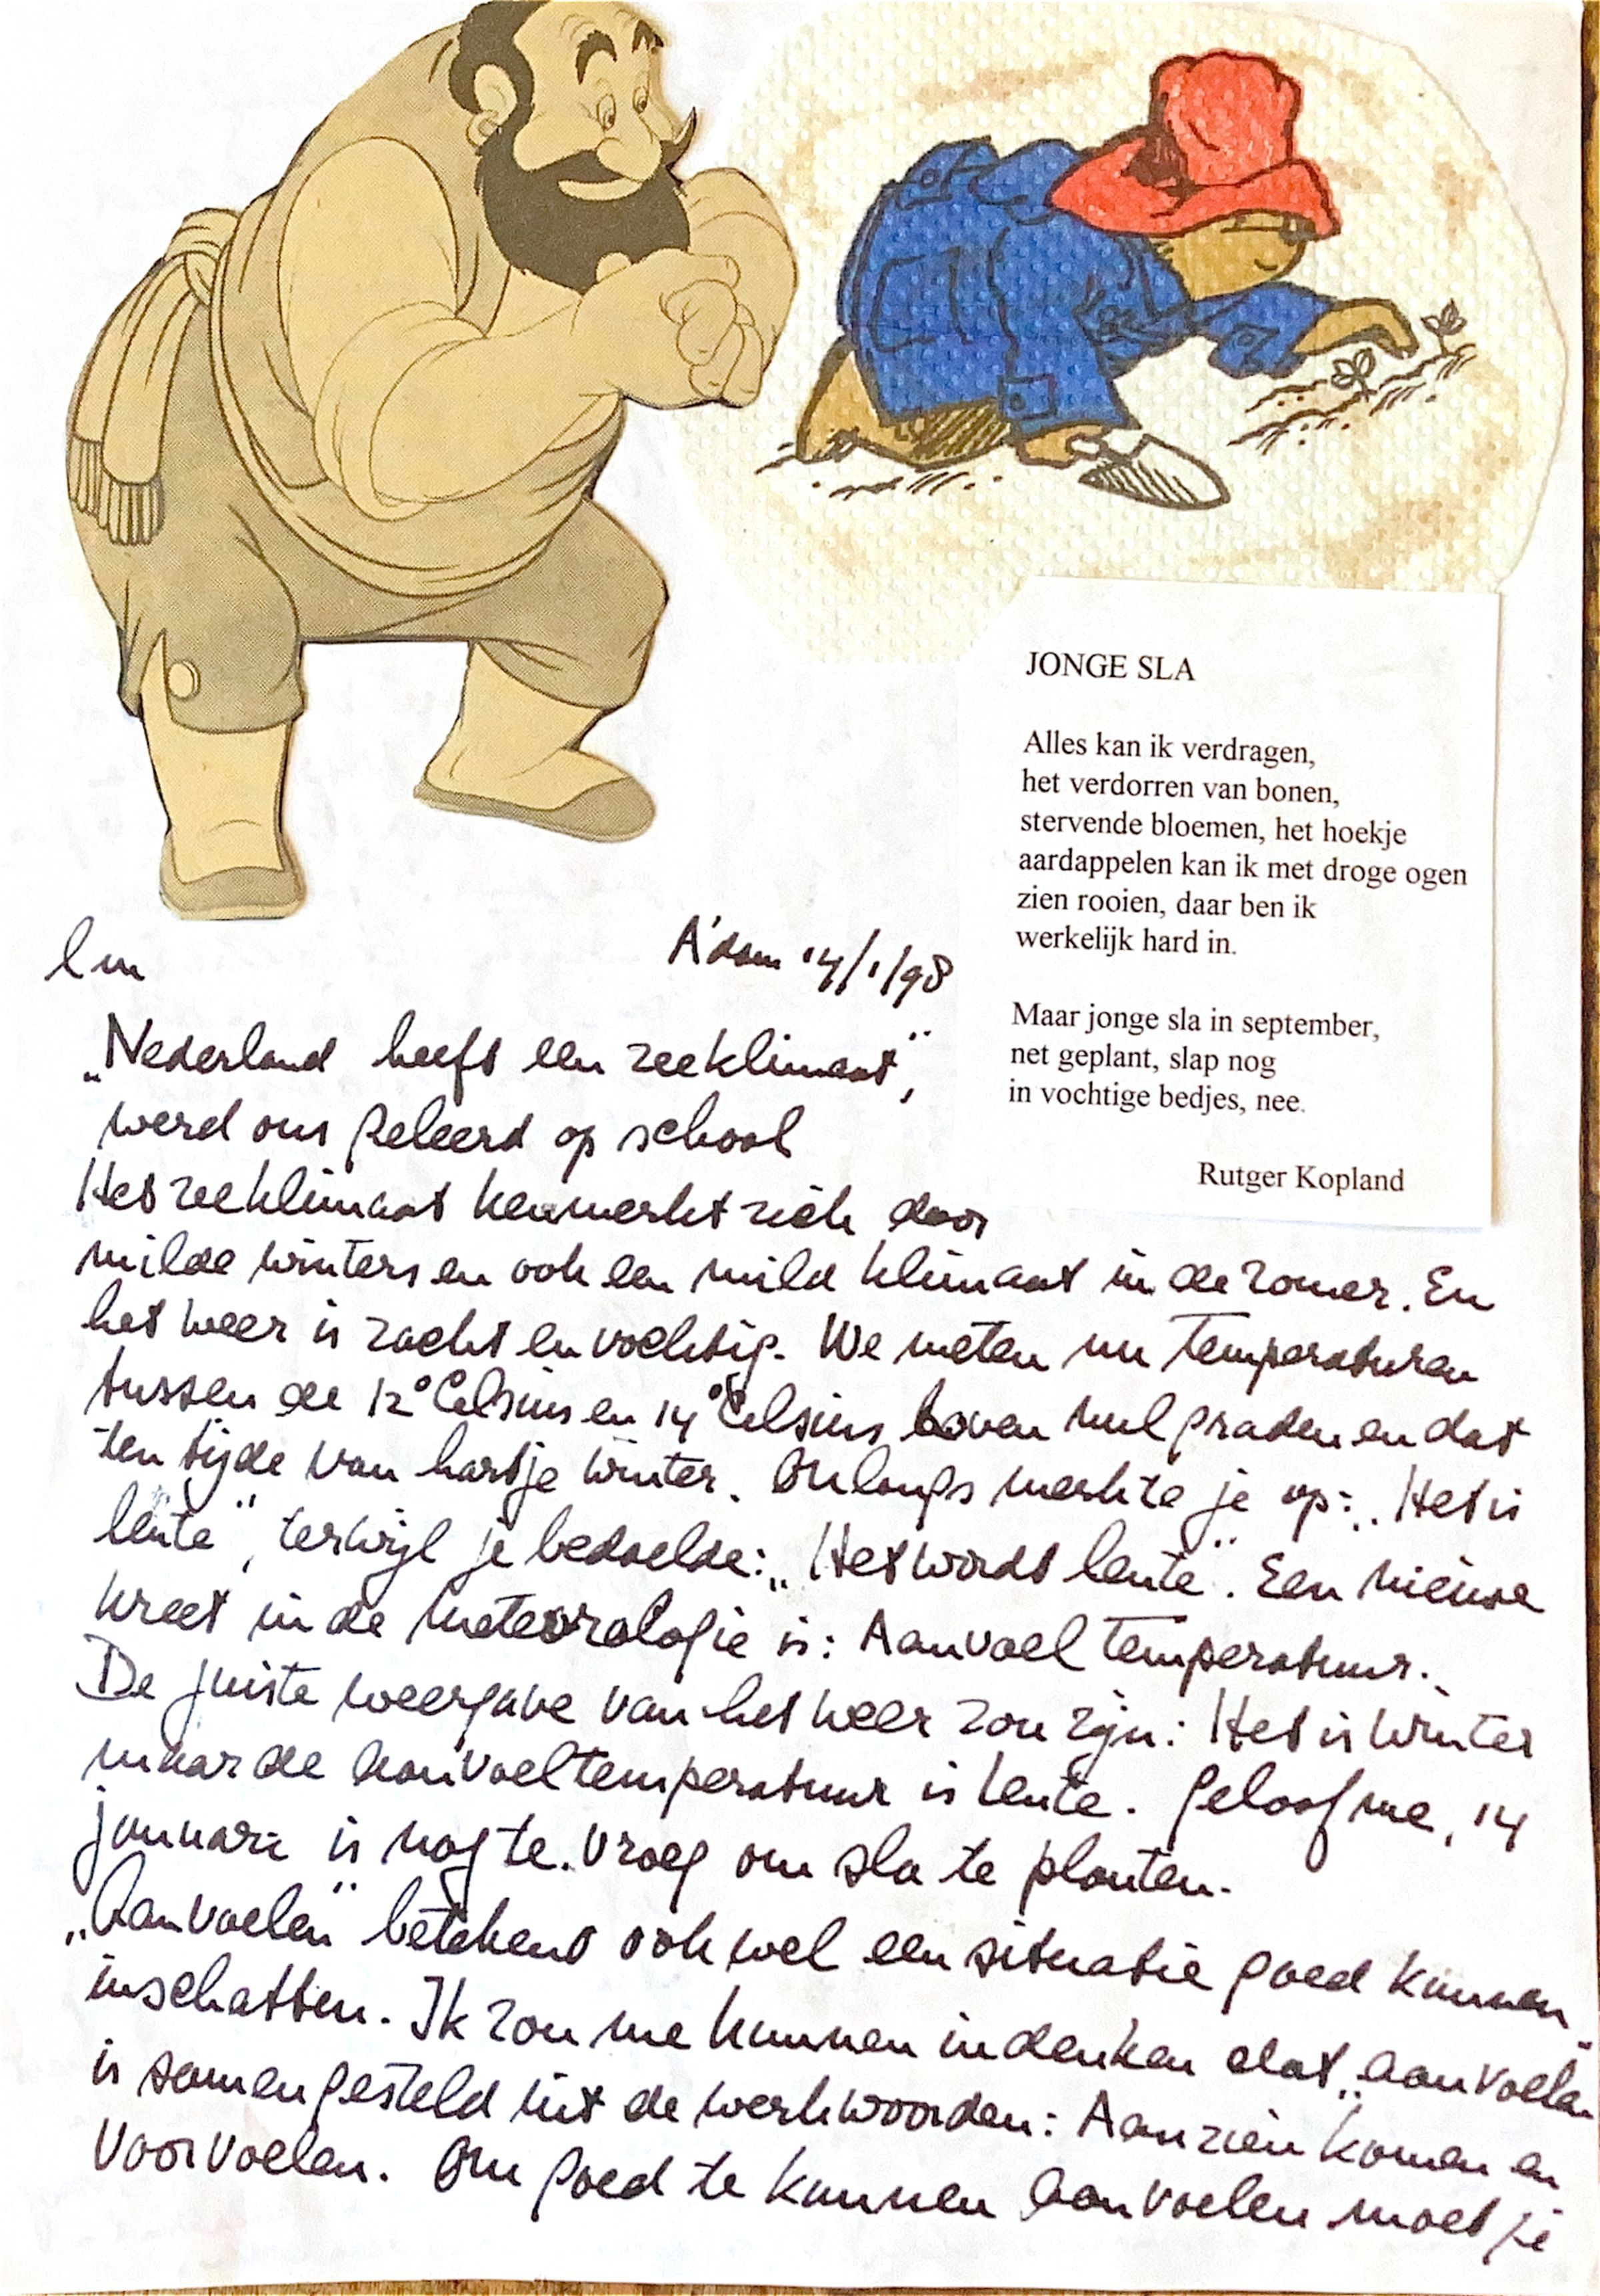 JONGE SLA
Alles kan ik verdragen,
het verdorren van bonen,
stervende bloemen, het hoekje
aardappelen kan ik met droge ogen
zien rooien, daar ben ik
werkelijk hard in.
Maar jonge sla in september,
net geplant, slap nog
in vochtige bedjes, nee.
Rutger Kopland
A'dam 14/1/98
„Nederland heeft een zeeklimaat",
werd ons geleerd op school
Het zeeklimaat kenmerkt zich door
milde winters en ook een mild klimaat in de zomer. En
het weer is zacht en vochtig. We meten nu temperaturen
tussen de 12° Celsius en 14° Celsius boven nul graden en dat
ten tijde van hartje winter. Onlangs merkte je op: „Het is
lente", terwijl je bedoelde: „Het wordt lente". Een nieuwe
kreet in de meteorologie is: Aanvoel temperatuur.
De juiste weergave van het weer zou zijn: Het is winter
maar de aanvoeltemperatuur is lente. Geloof me, 14
januari is nog te vroeg om sla te planten.
„Aanvoelen" betekend ook wel een situatie goed kunnen
inschatten. Ik zou me kunnen indenken dat „aanvoelen"
is samengesteld uit de werkwoorden: Aanzien komen en
Voorvoelen. Om goed te kunnen aanvoelen moet je